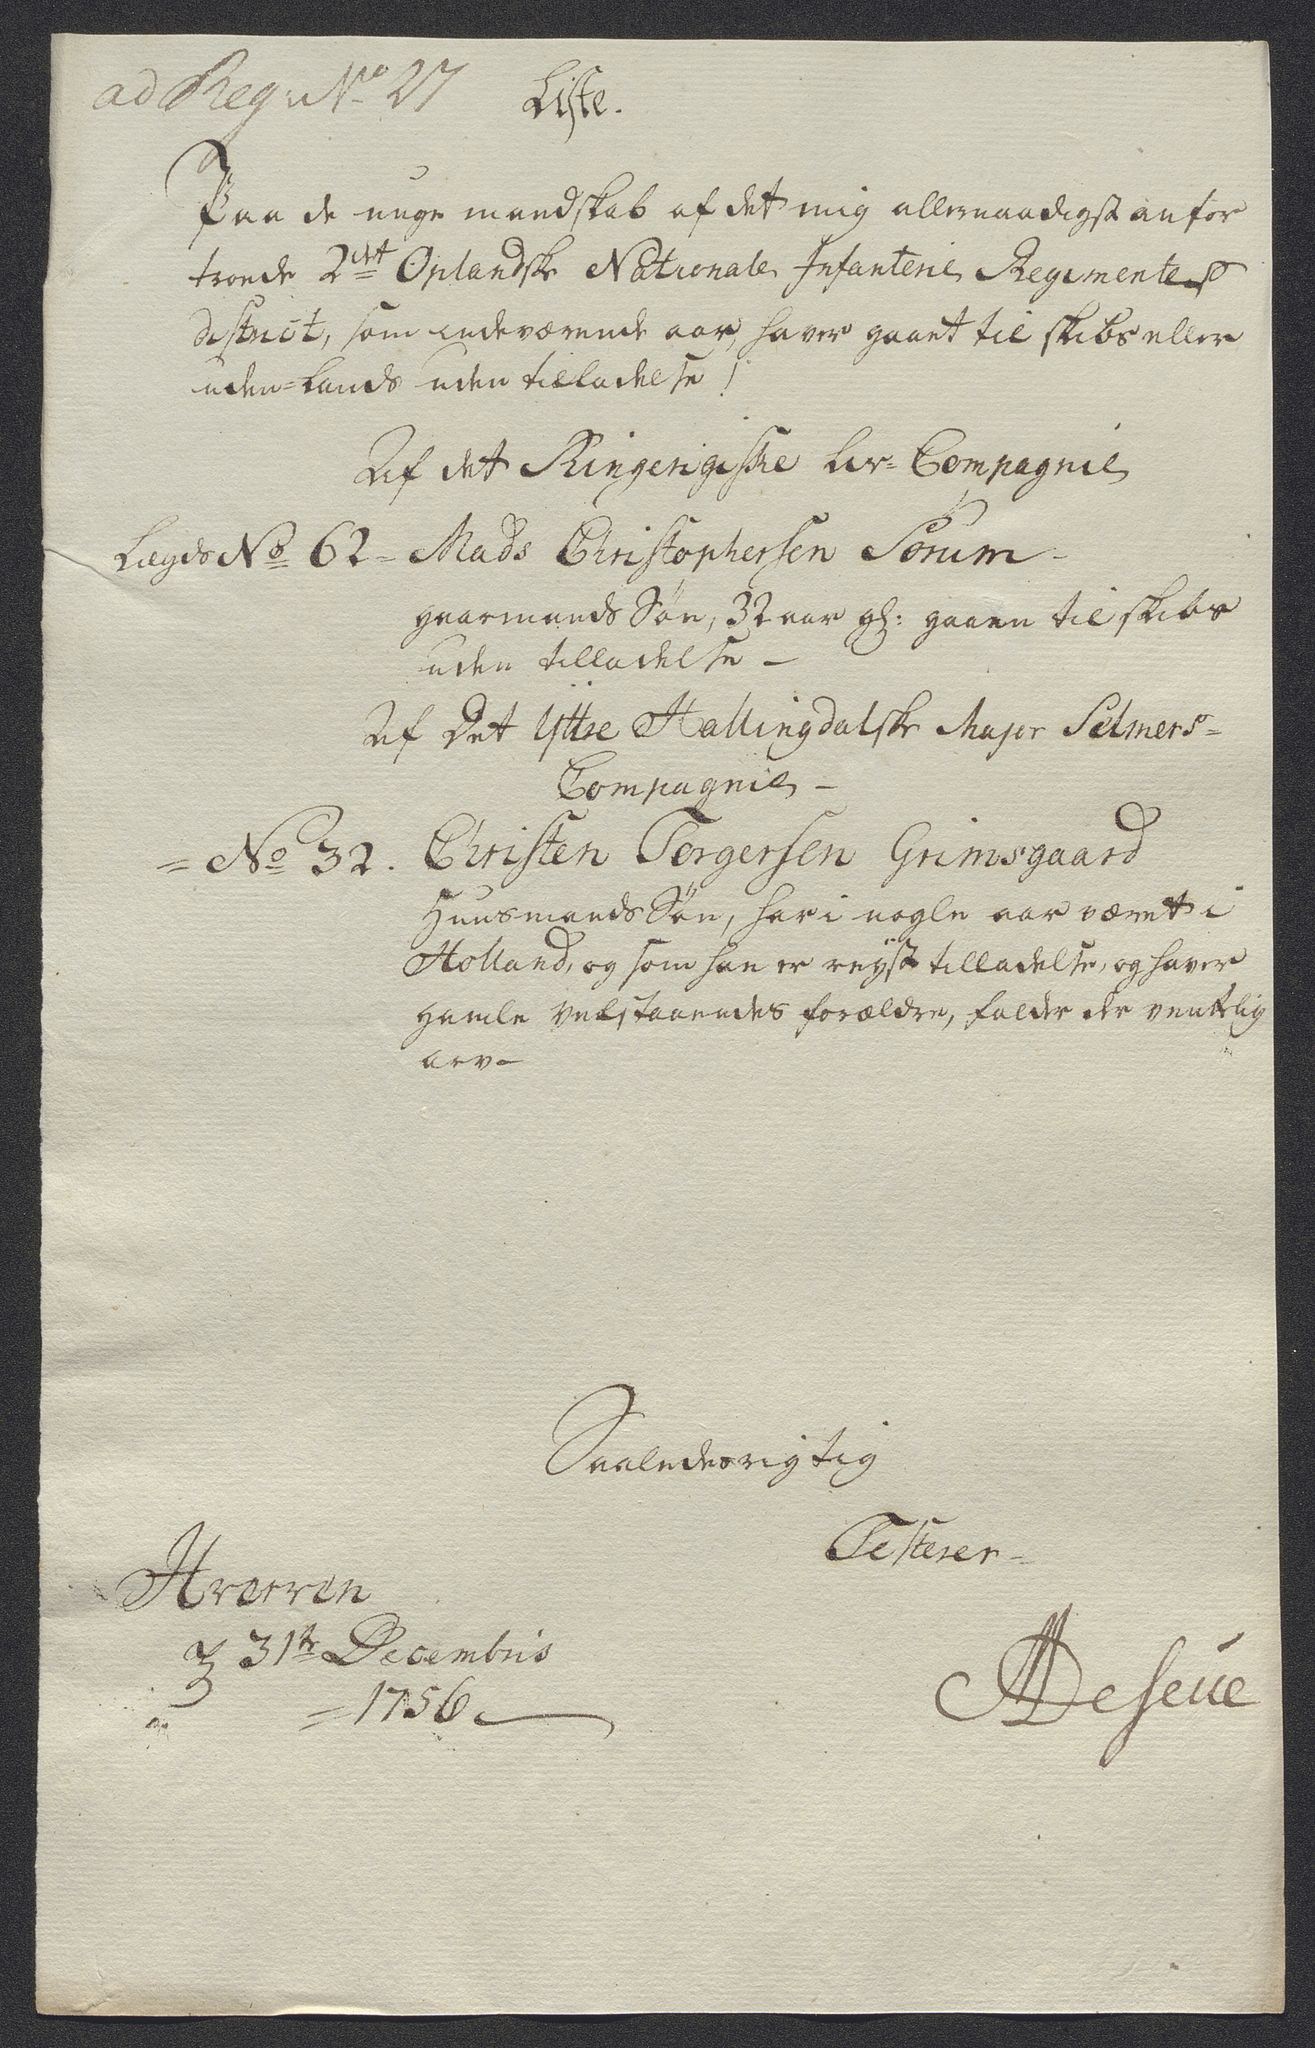 ad Reg: No 27
Liste.
Paa de unge mandskab af det mig allernaadigst anfor
troede 2det Oplandske Nationale Infanterie Regimentes
District, som indeværende aar, haver gaaet til skibs eller
uden-Lands uden tilladelse!
Af det Ringerigske Liv-Compagnie
Lægds No 62 - Mads Christophersen Sørum -
gaarmands Søn, 32 aar gl: gaaen til skibs
uden tilladelse -
Af Det Yttre Hallingdalske Major Selmers-
Compagnie -
= No 32. Christen Torgersen Grimsgaard
Huusmands Søn, har i nogle aar været i
Holland, og som han er reyst tilladelse, og haver
gamle velstaaendes forældre, falder der ventelig
arv -
Saaledes rigtig
Testerer -
31te Decembris
= 1756
ADeseue